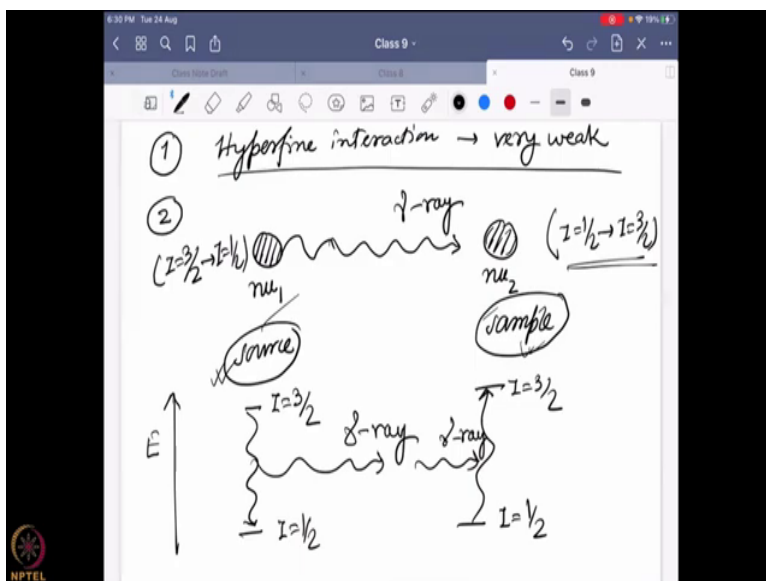 6:30 PM Tue 24 Aug
19%
Class 9
Class Note Draft
Class 8
Class 9
① Hyperfine interaction → very weak
② γ-ray
(I=3/2→I=1/2) (I=1/2→I=3/2)
nu₁ nu₂
source sample
E I=3/2 γ-ray γ-ray I=3/2
I=1/2 I=1/2
NPTEL